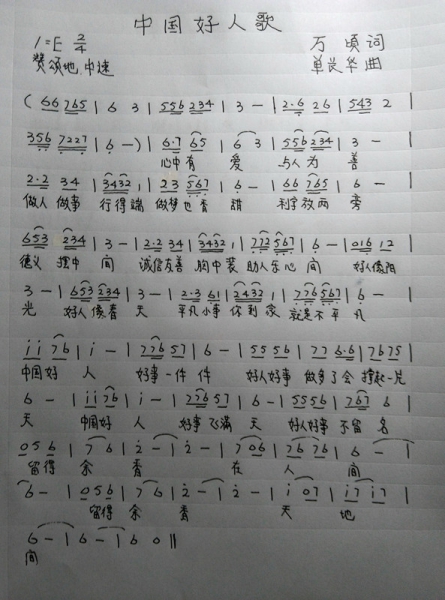 中国好人歌
1=E 2/4 万顷词
赞颂地.中速 单长华曲
( 66 765 | 6 3 | 556 234 | 3 — | 2·6 26 | 543 2 |
356 7227 | 6 — ) | 6·7 65 | 6 3 | 556 234 | 3 — |
心中有 爱 与人为 善
2·2 34 | 3432 1 | 23 567 | 6 — | 66 765 | 6 — |
做人 做事 行得端 做梦也香 甜 利字放两 旁
653 234 | 3 — | 2·2 34 | 3432 1 | 772 567 | 6 — | 016 12 |
德义 摆中 间 诚信友善 胸中装 助人乐心 间 好人像阳
3 — | 653 234 | 3 — | 2·3 61 | 2432 1 | 776 567 | 6 — |
光 好人像春 天 平凡小事 你到家 就是不平 凡
i i 76 | i — | 776 57 | 6 — | 555 6 | 77 6·6 | 7675 |
中国好 人 好事一件 件 好人好事 做多了会 撑起一片
6 — | i i 76 | i — | 776 57 | 6 — | 5556 | 767 6 |
天 中国好 人 好事飞满 天 好人好事 不留 名
056 | 76 | 2 — | 2 — | 706 | 76 | 6 — |
留得 余 香 在 人 间
6 — | 056 | 76 | 2 — | 2 — | i 07 | i7 i7 |
留得 余 香 天 地
6 — | 6 — | 6 0 ‖
间